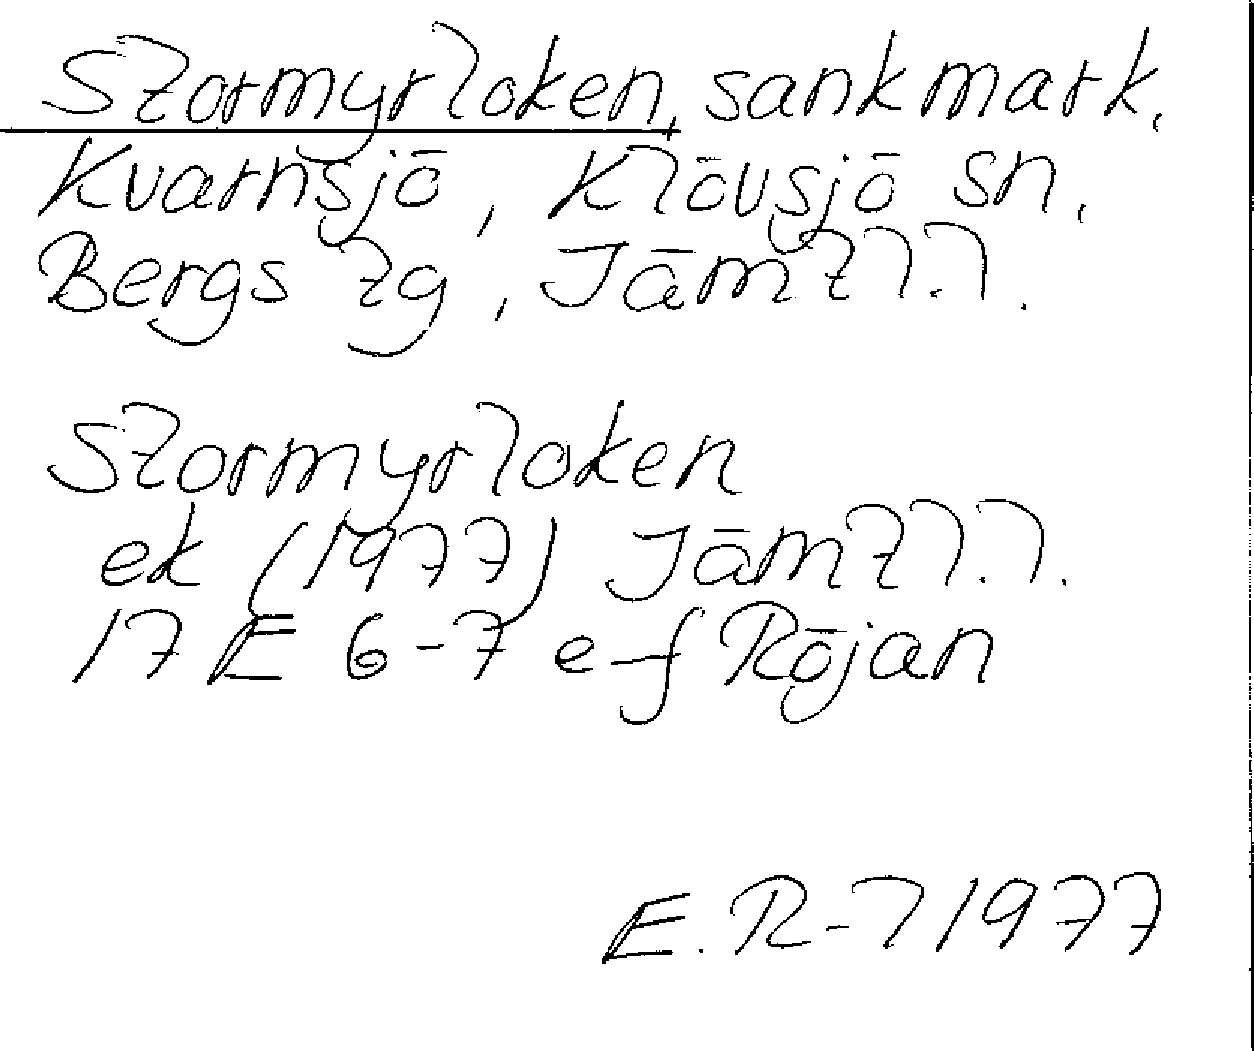 Stormyrloken, sankmark,
Kvarnsjö, Klövsjö sn,
Bergs tg, Jämtl.l.
Stormyrloken
ek (1977) Jämtl.l.
17 E 6-7 e-f Röjan
E. R-l 1977